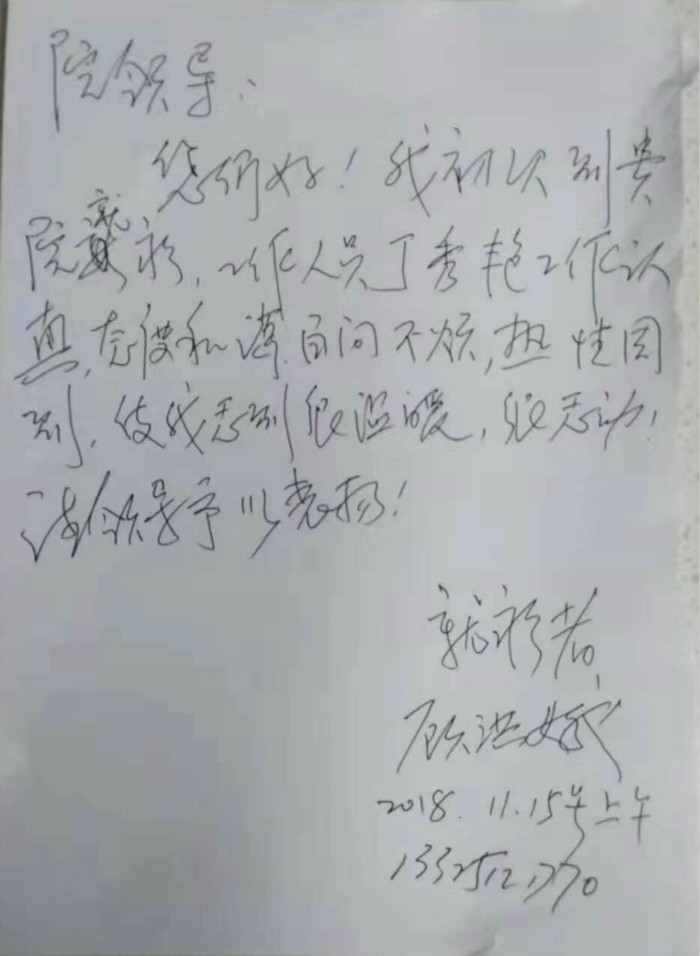 院领导：
您们好！我初次到贵
院就诊，工作人员丁秀艳工作认
真，态度和谐，百问不烦，热性周
到，使我感到很温暖，很感动！
请领导予以表扬！
就诊者，
顾洪娥
2018.11.15号上午